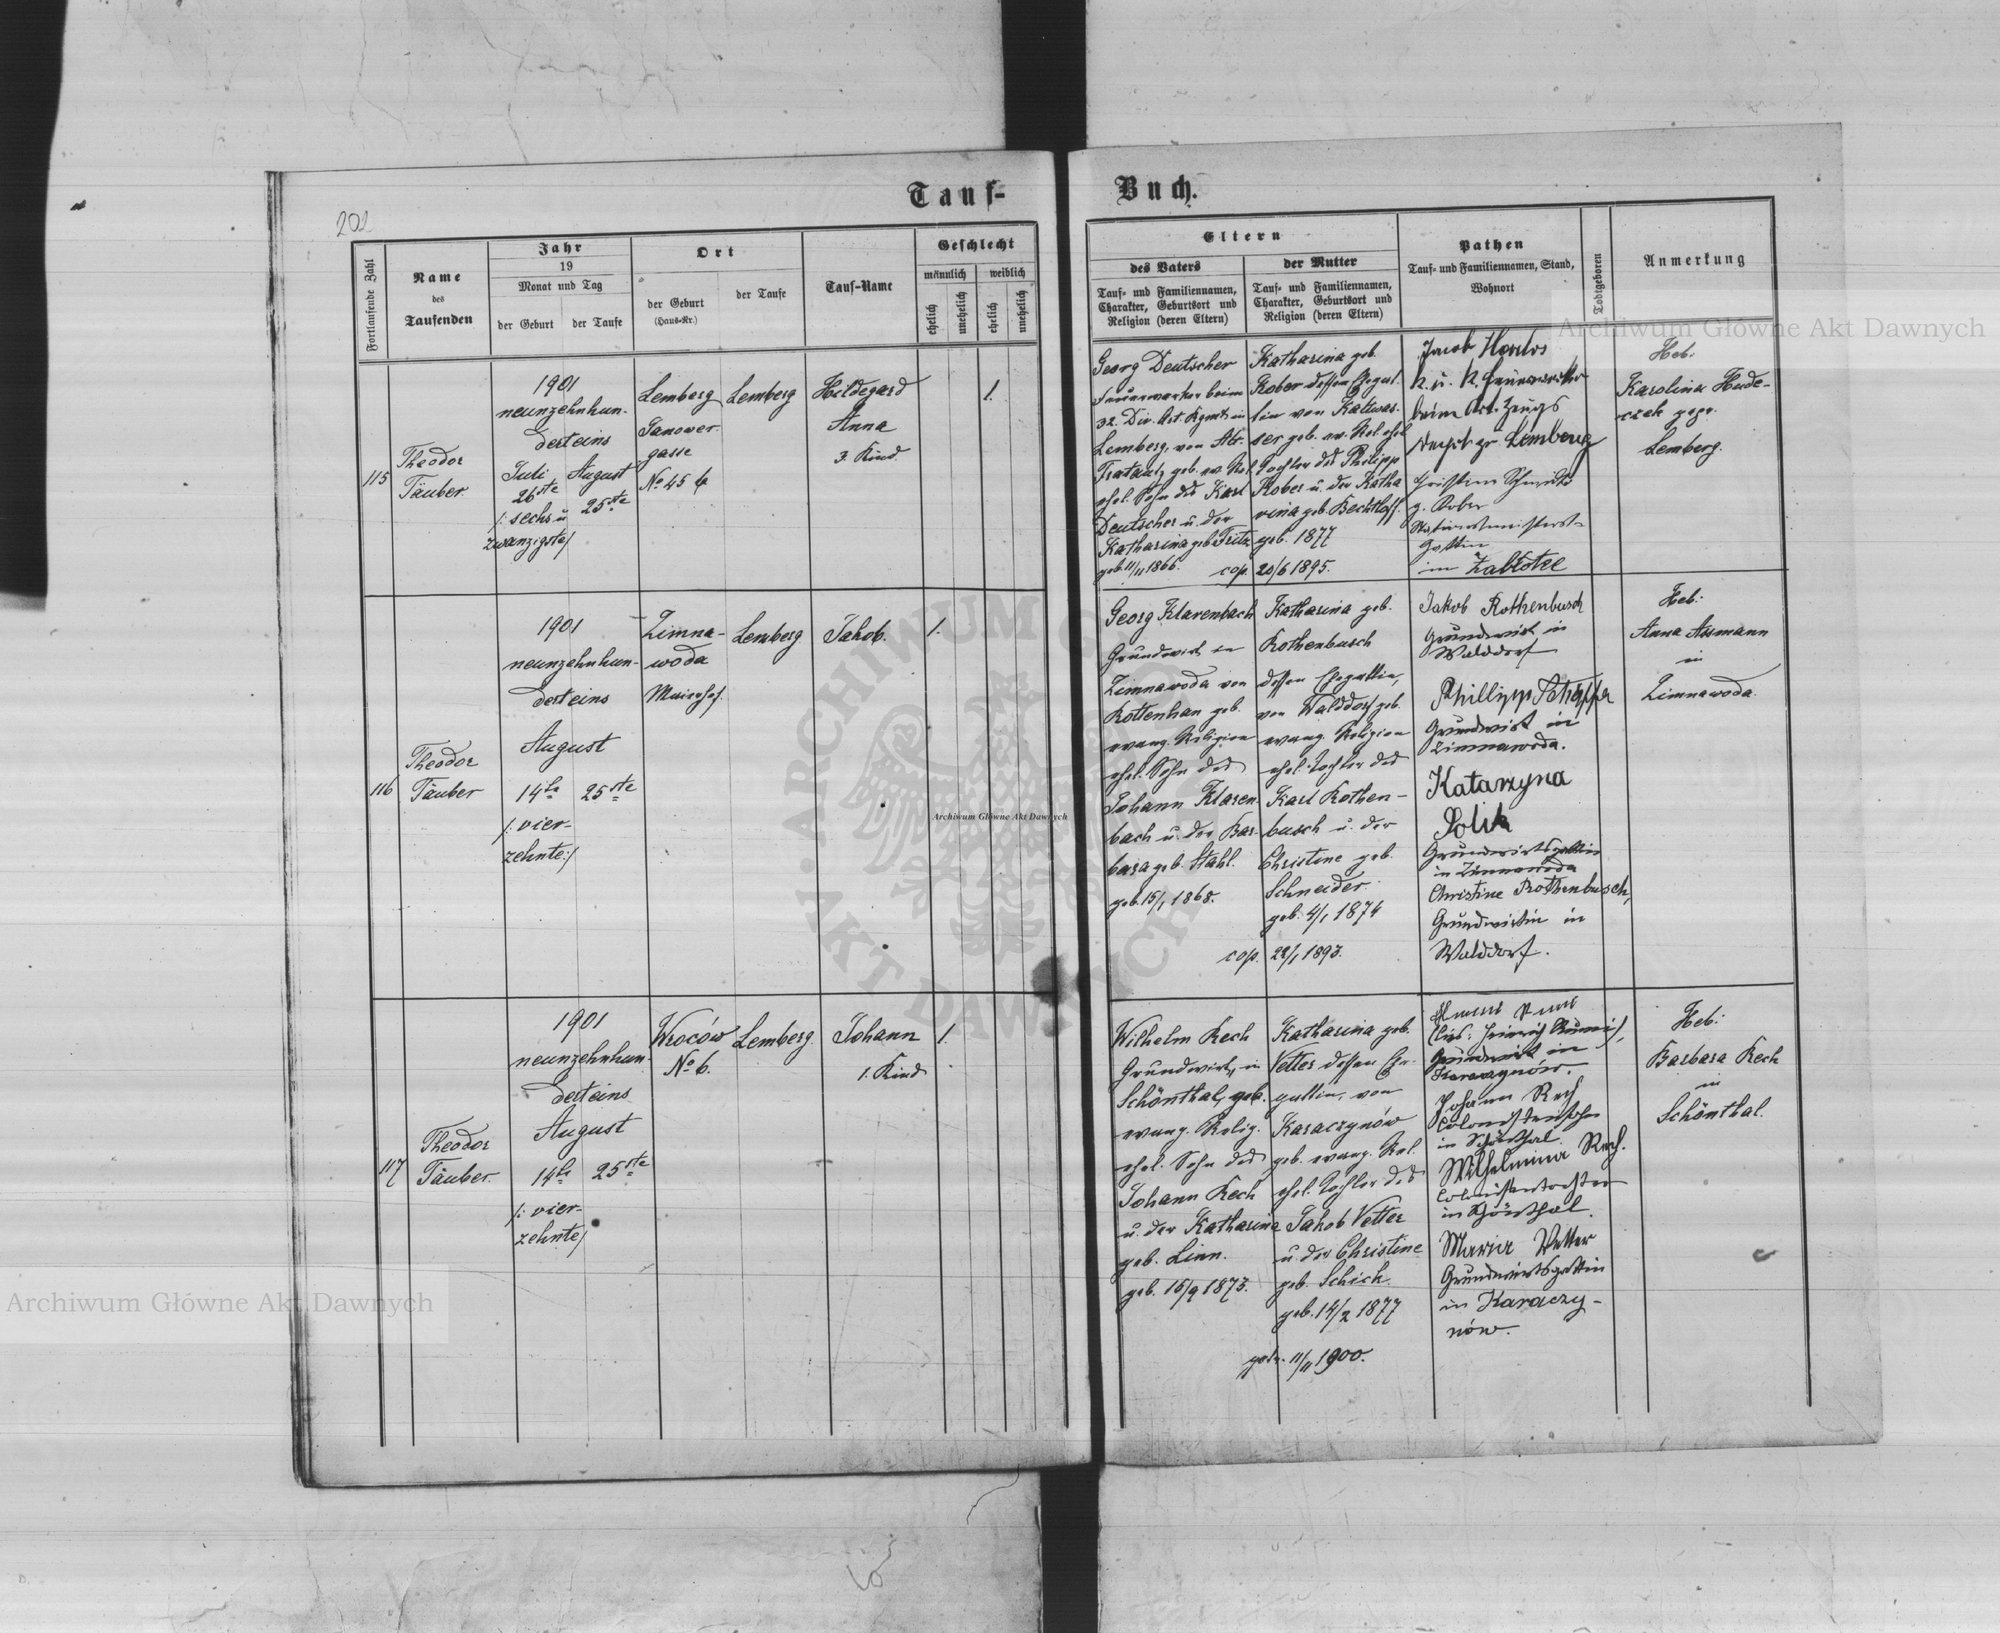 Tauf-
Buch.
202
Fortlaufende Zahl
Name
des
Taufenden
Jahr
19
Monat und Tag
der Geburt
der Taufe
Ort
der Geburt
(Haus-Nr.)
der Taufe
Tauf-Name
Geschlecht
männlich
weiblich
ehelich
unehelich
ehelich
unehelich
Eltern
des Vaters
Tauf- und Familiennamen,
Charakter, Geburtsort und
Religion (deren Eltern)
der Mutter
Tauf- und Familiennamen,
Charakter, Geburtsort und
Religion (deren Eltern)
Pathen
Tauf- und Familiennamen, Stand,
Wohnort
Todtgeboren
Anmerkung
115
Theodor
Täuber
1901
neunzehnhun-
derteins
Juli August
26ste 25ste
/: sechs u
zwanzigste/
Lemberg
Janower
gasse
No 45
Lemberg
Hildegard
Anna
3. Kind
1.
Georg Deutscher
Feuerwerker beim
32. Div. Art. Rgmt in
Lemberg, von
geb. ev. Rel
ehel. Sohn des Karl
Deutscher u. der
Katharina geb Fritz
geb 11/11 1866.
Katharina geb.
Kober dessen Ehegat-
tin von Kaltwas-
ser geb. ev. Rel ehel
Tochter des Philipp
Kober u. der Katha
rina geb Bechtloff
geb. 1877
cop. 20/6 1895.
Jacob
k. u. k.
beim Art. Zeugs
Depot zu Lemberg
Christine Schmidt
g. Kober
Gattin
in
Heb:
Karolina Hude-
czek gepr.
Lemberg.
116
Theodor
Täuber
1901
neunzehnhun-
derteins
August
14te 25ste
/: vier-
zehnte:/
Zimna-
woda
Maierhof.
Lemberg
Jakob.
1.
Georg Klarenbach
Grundwirt in
Zimnawoda von
Rottenhan geb.
evang. Religion
ehel. Sohn des
Johann Klaren-
bach u. der Bar-
bara geb. Stahl.
geb. 15/1 1868.
Katharina geb.
Rothenbusch
dessen Ehegattin,
von Walddorf geb.
evang. Religion
ehel. Tochter des
Karl Rothen-
busch u. der
Christine geb.
Schneider.
geb. 4/1 1874
cop. 22/1 1893.
Jakob Rothenbusch
Grundwirt in
Walddorf
Phillipp
Grundwirt in
Zimnawoda.
Katarzyna
Polik
Grundwirtsgattin
in Zimnawoda
Christine Rothenbusch,
Grundwirtin in
Walddorf.
Heb:
Anna Assmann
in
Zimnawoda.
117
Theodor
Täuber.
1901
neunzehnhun-
derteins
August
14te 25ste
/: vier-
zehnte/
Wroców
No 6.
Lemberg.
Johann
1. Kind
1.
Wilhelm Rech
Grundwirt, in
Schönthal, geb.
evang. Relig.
ehel. Sohn des
Johann Rech
u. der Katharina
geb. Linn.
geb. 15/9 1873.
Katharina geb.
Vetter dessen Ehe-
gattin, von
Karaczynów
geb. evang. Rel.
ehel. Tochter des
Jakob Vetter
u. der Christine
geb. Schick.
geb. 14/2 1877
getr. 11/11 1900.
Grundwirt in
Karaczynów.
Johann Rech
Colonistensohn
in Schönthal.
Wilhelmina Rech.
Colonistentochter
in Schönthal.
Maria Vetter
Grundwirtsgattin
in Karaczy-
nów.
Heb:
Barbara Rech
in
Schönthal.
Archiwum Główne Akt Dawnych
Archiwum Główne Akt Dawnych
Archiwum Główne Akt Dawnych
ARCHIWUM
AKT DAWNYCH